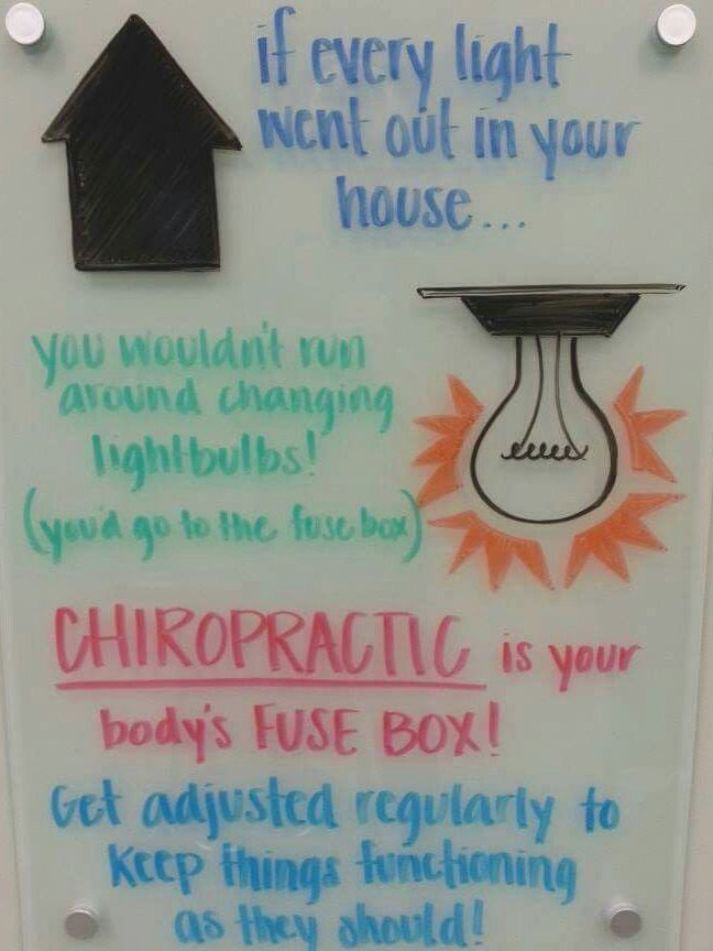 if every light
went out in your
house...
you wouldn't run
around changing
lightbulbs!
(you'd go to the fuse box)
CHIROPRACTIC is your
body's FUSE BOX!
Get adjusted regularly to
keep things functioning
as they should!